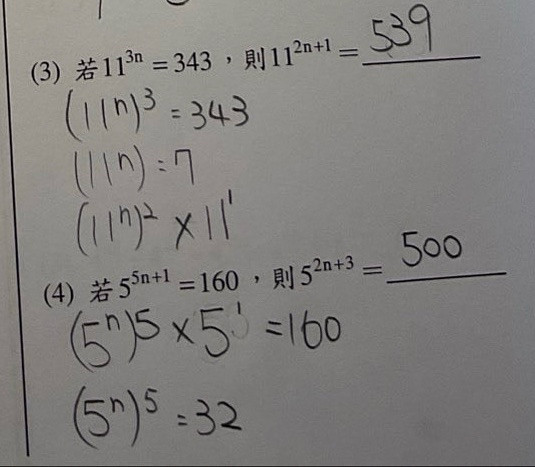 (3) 若 11³ⁿ = 343，則 11²ⁿ⁺¹ = 539
(11ⁿ)³ = 343
(11ⁿ) = 7
(11ⁿ)² × 11¹
(4) 若 5⁵ⁿ⁺¹ = 160，則 5²ⁿ⁺³ = 500
(5ⁿ)5 × 5¹ = 160
(5ⁿ)⁵ = 32